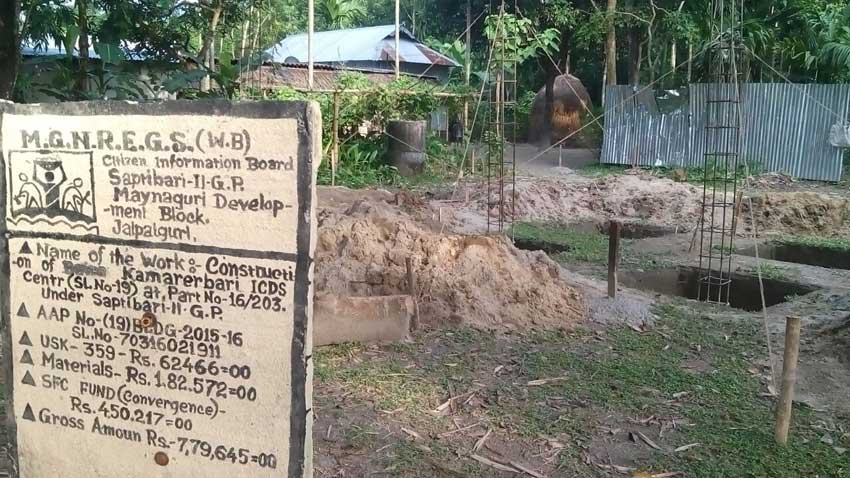 M.G.N.R.E.G.S.(W.B)
Citizen Information Board
Saptibari-II-G.P.
Maynaguri Develop-
-ment Block.
Jalpaiguri.
Name of the Work: Constructi
-on of Kamarerbari ICDS
Centr (SL No-19) at Part No-16/203.
Under Saptibari-II-G.P.
AAP No-(19) -2015-16
SL.No-70316021911
USK-359-Rs. 62466=00
Materials-Rs.1,82.572=00
SFC FUND (convergence)-
Rs.4,50.217=00
Gross Amoun Rs-7,79,645=00